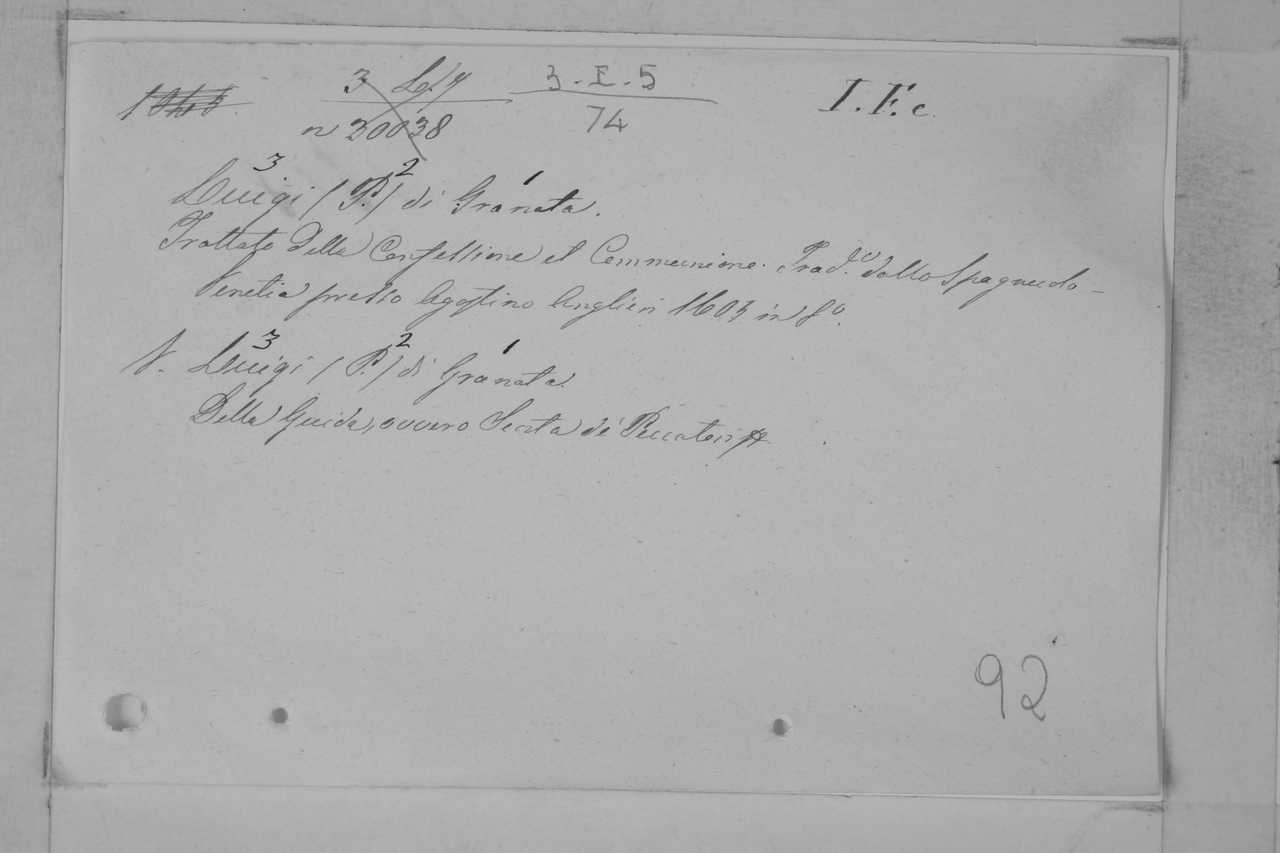 3 3-E-5 I. F. c.
n 30038 74
3 2 1
Luigi (P.) di Granata.
Trattato della Confessione et Communione. Trad.to dallo Spagnuolo -
Venetia presso Agostino Anglieri 1603 in 8o.
3 2 1
V. Luigi (P.) di Granata.
Della Guida, ovvero Scorta de' Peccatori
92